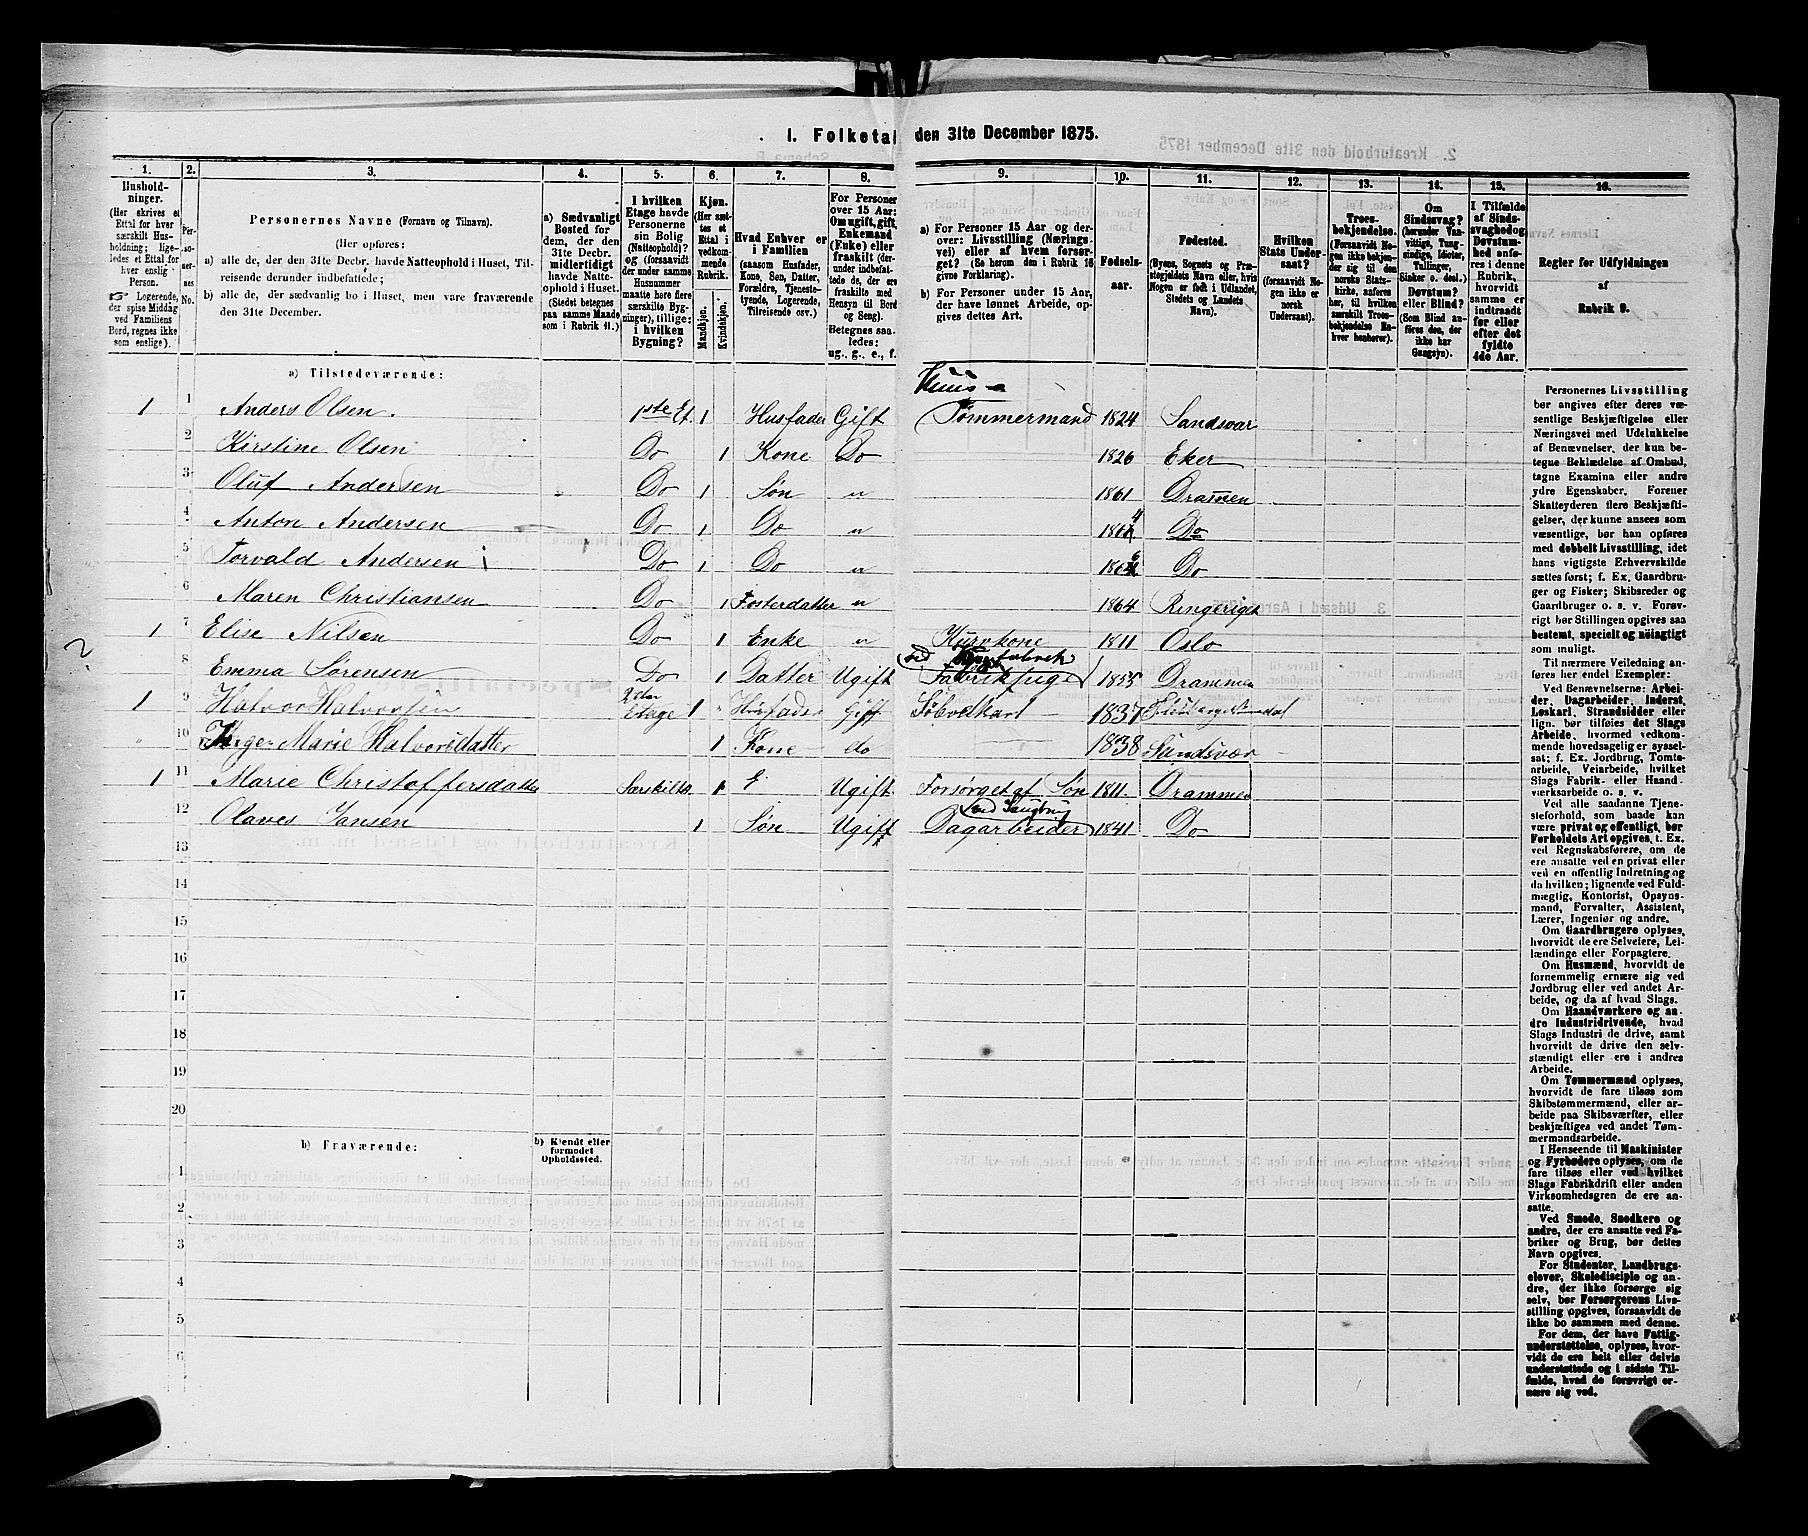 1. Folketal den 31te December 1875.
1. 2. 3. 4. 5. 6. 7. 8. 9. 10. 11. 12. 13. 14. 15. 16.
Husholdninger.
(Her skrives et
Ettal for hver
særskilt Husholdning;
ligeledes et Ettal for
hver enslig
Person.
☞ Logerende,
der spise Middag
ved Familiens
Bord, regnes ikke
som enslige).
Personernes No.
Personernes Navne (Fornavn og Tilnavn).
(Her opføres:
a) alle de, der den 31te Decbr. havde Natteophold i Huset, Tilreisende derunder indbefattede;
b) alle de, der sædvanlig bo i Huset, men vare fraværende
den 31te December.
a) Sædvanligt
Bosted for
dem, der den
31te Decbr.
midlertidigt
havde Natteophold i Huset.
(Stedet betegnes
paa samme Maade
som i Rubrik 11.)
I hvilken
Etage havde
Personerne
sin Bolig
(Natteophold)?
og (forsaavidt
der under samme
Husnummer
maatte høre flere
særskilte Bygninger), tillige:
i hvilken
Bygning?
Kjøn.
(Her sættes et
Ettal i
vedkommende
Rubrik.
Mandkjøn.
Kvindekjøn.
Hvad Enhver er
i Familien
(saasom Husfader,
Kone, Søn, Datter,
Forældre, Tjenestetyende, Logerende,
Tilreisende osv.)
For Personer
over 15 Aar:
Om ugift, gift,
Enkemand
(Enke) eller
fraskilt (derunder indbefattede, de, der ere
fraskilte med
Hensyn til Bord
og Seng).
Betegnes saaledes:
ug., g., e., f.
a) For Personer 15 Aar og derover: Livsstilling (Næringsvei) eller af hvem forsørget? (Se herom den i Rubrik 16
givne Forklaring).
b) For Personer under 15 Aar,
der have lønnet Arbeide, opgives dettes Art.
Fødselsaar.
Fødested.
(Byens, Sognets og Præstegjeldets Navn eller, hvis
Nogen er født i Udlandet,
Stedets og Landets
Navn).
Hvilken
Stats Undersaat?
(forsaavidt Nogen ikke er
norsk
Undersaat).
Troesbekjendelse.
(Forsaavidt Nogen ikke bekjender sig til den
norske Statskirke, anføres
her, til hvilken
særskilt Troesbekjendelse Enhver henhører).
Om
Sindssvag?
(herunder Vanvittige, Tungsindige, Idioter,
Tullinger,
Sinker o. desl.)
Døvstum?
eller Blind?
(Som Blind anføres den, der
ikke har
Gangsyn).
I Tilfælde
af Sindssvaghed og
Døvstumhed anføres i denne
Rubrik,
hvorvidt
samme er
indtraadt
før eller
efter det
fyldte
4de Aar.
Regler for Udfyldningen
af
Rubrik 9.
a) Tilstedeværende:
1 1 Anders Olsen. 1ste Et. 1 Husfader Gift Huus-Tømmermand 1824 Sandsvær
2 Kirstine Olsen Do 1 Kone Do 1826 Eker
3 Oluf Andersen Do 1 Søn " 1861 Drammen
4 Anton Andersen Do 1 Do " Do
5 Torvald Andersen Do 1 Do " Do
6 Maren Christiansen Do 1 Fosterdatter " 1864 Ringeriget
1 7 Elise Nilsen Do 1 Enke " Kurvkone 1811 Oslo
8 Emma Sørensen Do 1 Datter Ugift Fabrikpige 1855 Drammen
1 9 Halvor Halvorsen 2den Etage 1 Husfader Gift 1837
10 Marie Halvorsdatter 1 Kone do 1838 Sandsvær
1 11 Marie Christoffersdatter Særskilt 1 Ugift Forsørget af Søn 1811. Drammen
12 Olaves Jansen 1 Søn Ugift Dagarbeider ved Saugbrug 1841 Do
13
14
15
16
17
18
19
20
b) Fraværende:
b) Kjendt eller
formodet
Opholdssted.
1
2
3
4
5
6
Personernes Livsstilling
bør angives efter deres væsentlige Beskjæftigelse eller
Næringsvei med Udelukkelse
af Benævnelser, der kun betegne Beklædelse af Ombud,
tagne Examina eller andre
ydre Egenskaber. Forener
Skatteyderen flere Beskjæftigelser, der kunne ansees som
væsentlige, bør han opføres
med dobbelt Livsstilling, idet
hans vigtigste Erhvervskilde
sættes først; f. Ex. Gaardbruger og Fisker; Skibsreder og
Gaardbruger o. s. v. Forøvrigt bør Stillingen opgives saa
bestemt, specielt og nøiagtigt
som muligt.
Til nærmere Veiledning anføres her endel Exempler:
Ved Benævnelserne: Arbeider, Dagarbeider, Inderst,
Løskarl, Strandsidder eller
lign. bør tilføies det Slags
Arbeide, hvormed vedkommende hovedsagelig er sysselsat; f. Ex. Jordbrug, Tomtearbeide, Veiarbeide, hvilket
Slags Fabrik- eller Haandværksarbeide o. s. v.
Ved alle saadanne Tjenesteforhold, som baade kan
være privat og offentligt, bør
Forholdets Art opgives, t. Ex.
ved Regnskabsførere, om de
ere ansatte ved en privat eller
ved en offentlig Indretning og
da hvilken; lignende ved Fuldmægtig, Kontorist, Opsynsmand, Forvalter, Assistent,
Lærer, Ingeniør og andre.
Om Gaardbrugere oplyses,
hvorvidt de ere Selveiere, Leilændinge eller Forpagtere.
Om Husmænd, hvorvidt de
fornemmelig ernære sig ved
Jordbrug eller ved andet Arbeide, og da af hvad Slags.
Om Haandværkere og andre Industridrivende, hvad
Slags Industri de drive, samt
hvorvidt de drive den selvstændigt eller ere i andres
Arbeide.
Om Tømmermænd oplyses,
hvorvidt de fare tilsøs som
Skibstømmermænd, eller arbeide paa Skibsværfter, eller
beskjæftiges ved andet Tømmermandsarbeide.
I Henseende til Maskinister
og Fyrbødere oplyses, om de
fare tilsøs eller ved hvilket
Slags Fabrikdrift eller anden
Virksomhedsgren de ere ansatte.
Ved Smede, Snedkere og
andre, der ere ansatte ved Fabriker og Brug, bør dettes
Navn opgives.
For Studenter, Landbrugselever, Skoledisciple og andre, der ikke forsørge sig
selv, bør Forsørgerens Livsstilling opgives, forsaavidt de
ikke bo sammen med denne.
For dem, der have Fattigunderstøttelse, oplyses, hvorvidt de ere helt eller delvis
understøttede og i sidste Tilfælde, hvad de forøvrigt ernære sig ved.